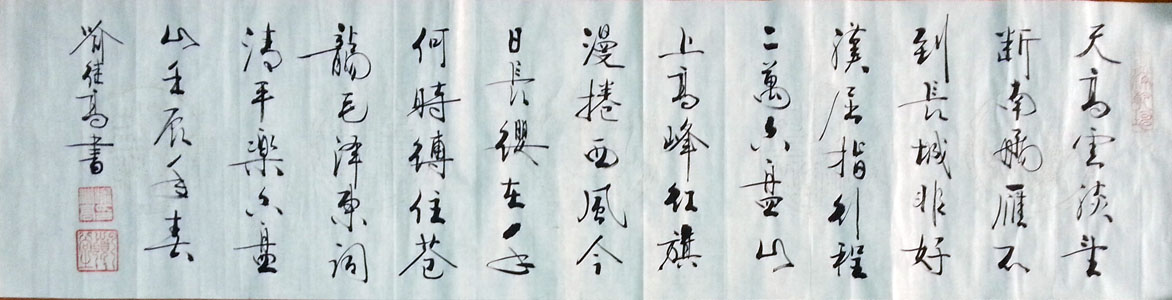 天高雲淡望
断南飛雁不
到長城非好
漢屈指行程
二萬六盤山
上高峰紅旗
漫捲西風今
日長纓在手
何時縛住蒼
龍毛澤東詞
清平樂六盤
山壬辰年春
徒高書